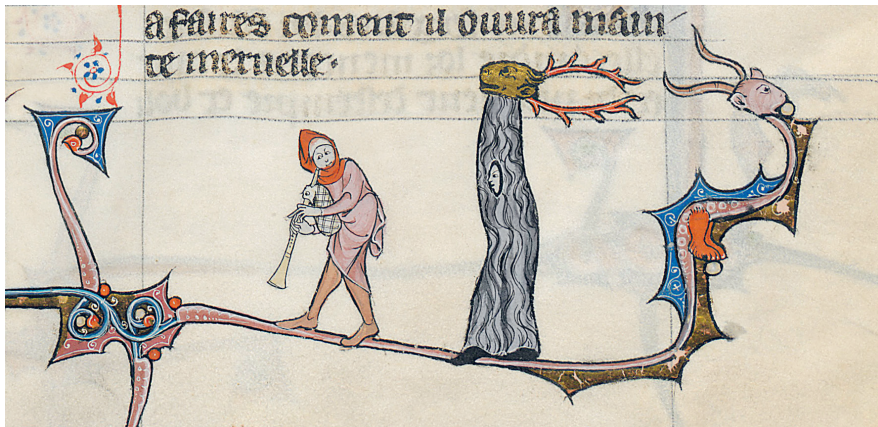 a faires coment il ouura main
te meruelle.